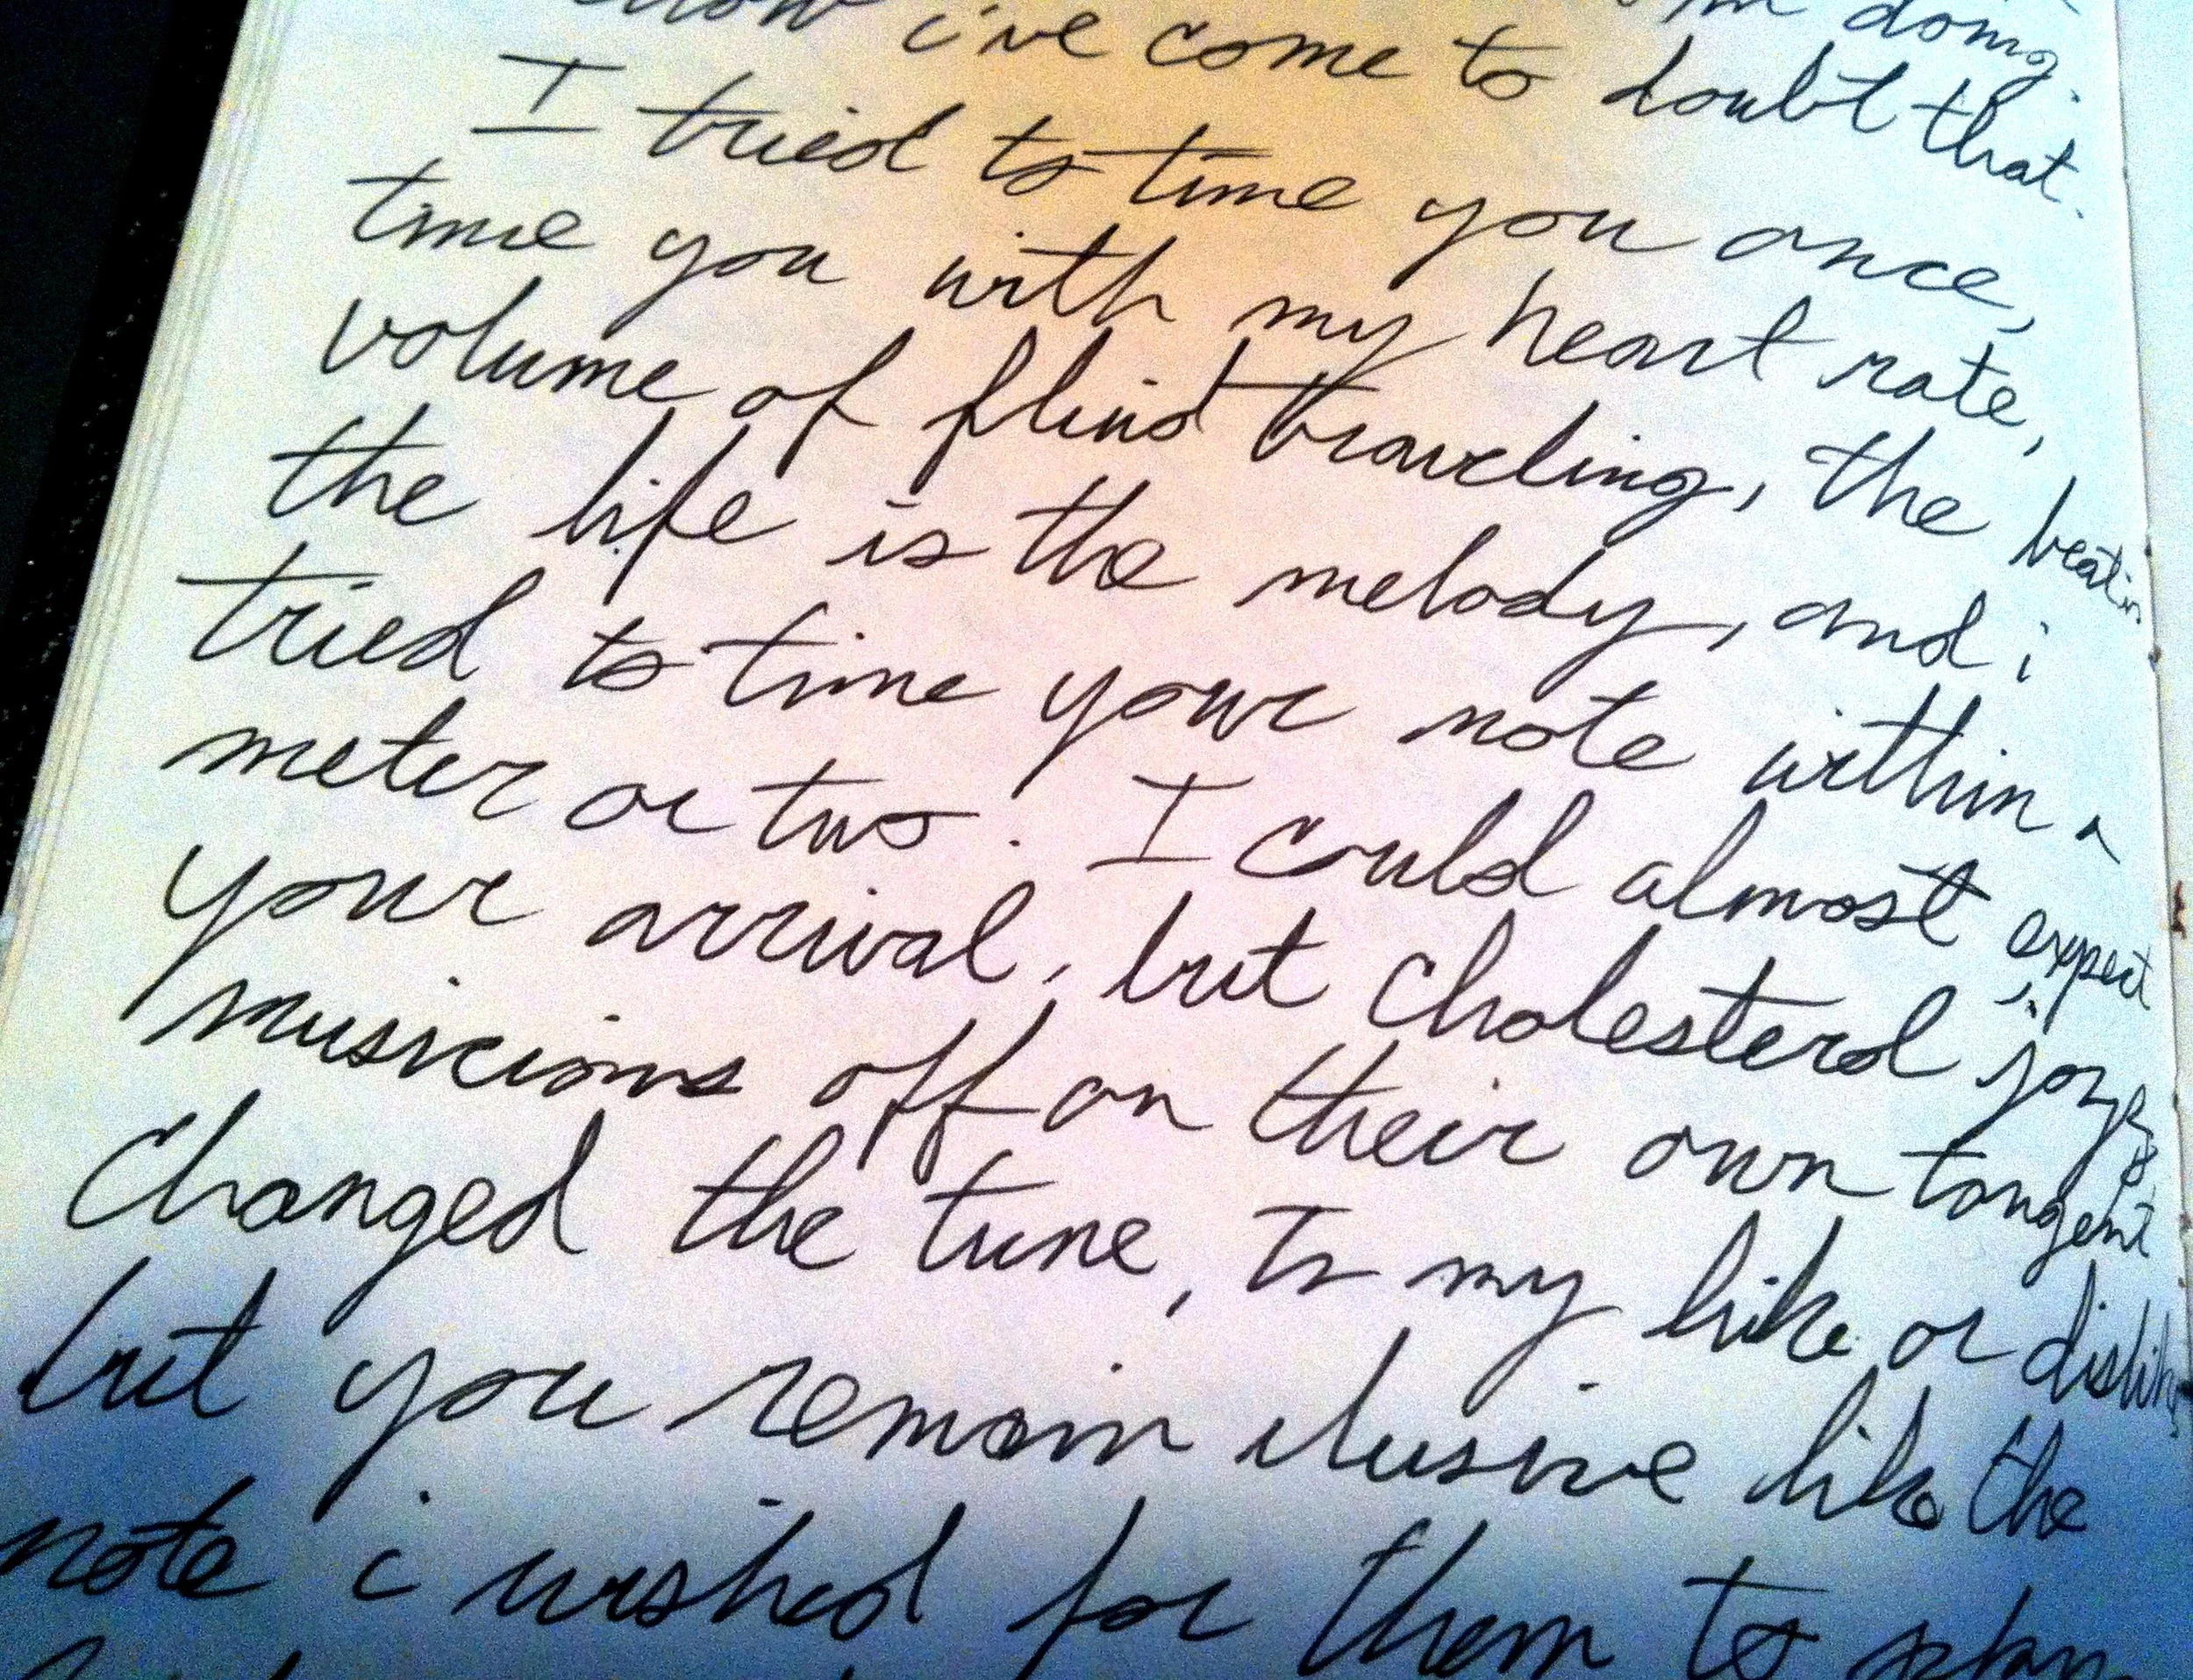 i've come to doubt that. doing.
I tried to time you once,
time you with my heart rate,
volume of fluid traveling, the beatin
the life is the melody, and i
tried to time your note within a
meter or two. I could almost expect
your arrival, but cholesterol, jazz
musicians off on their own tangent
changed the tune, to my like or dislike
but you remain elusive like the
note i wished for them to play